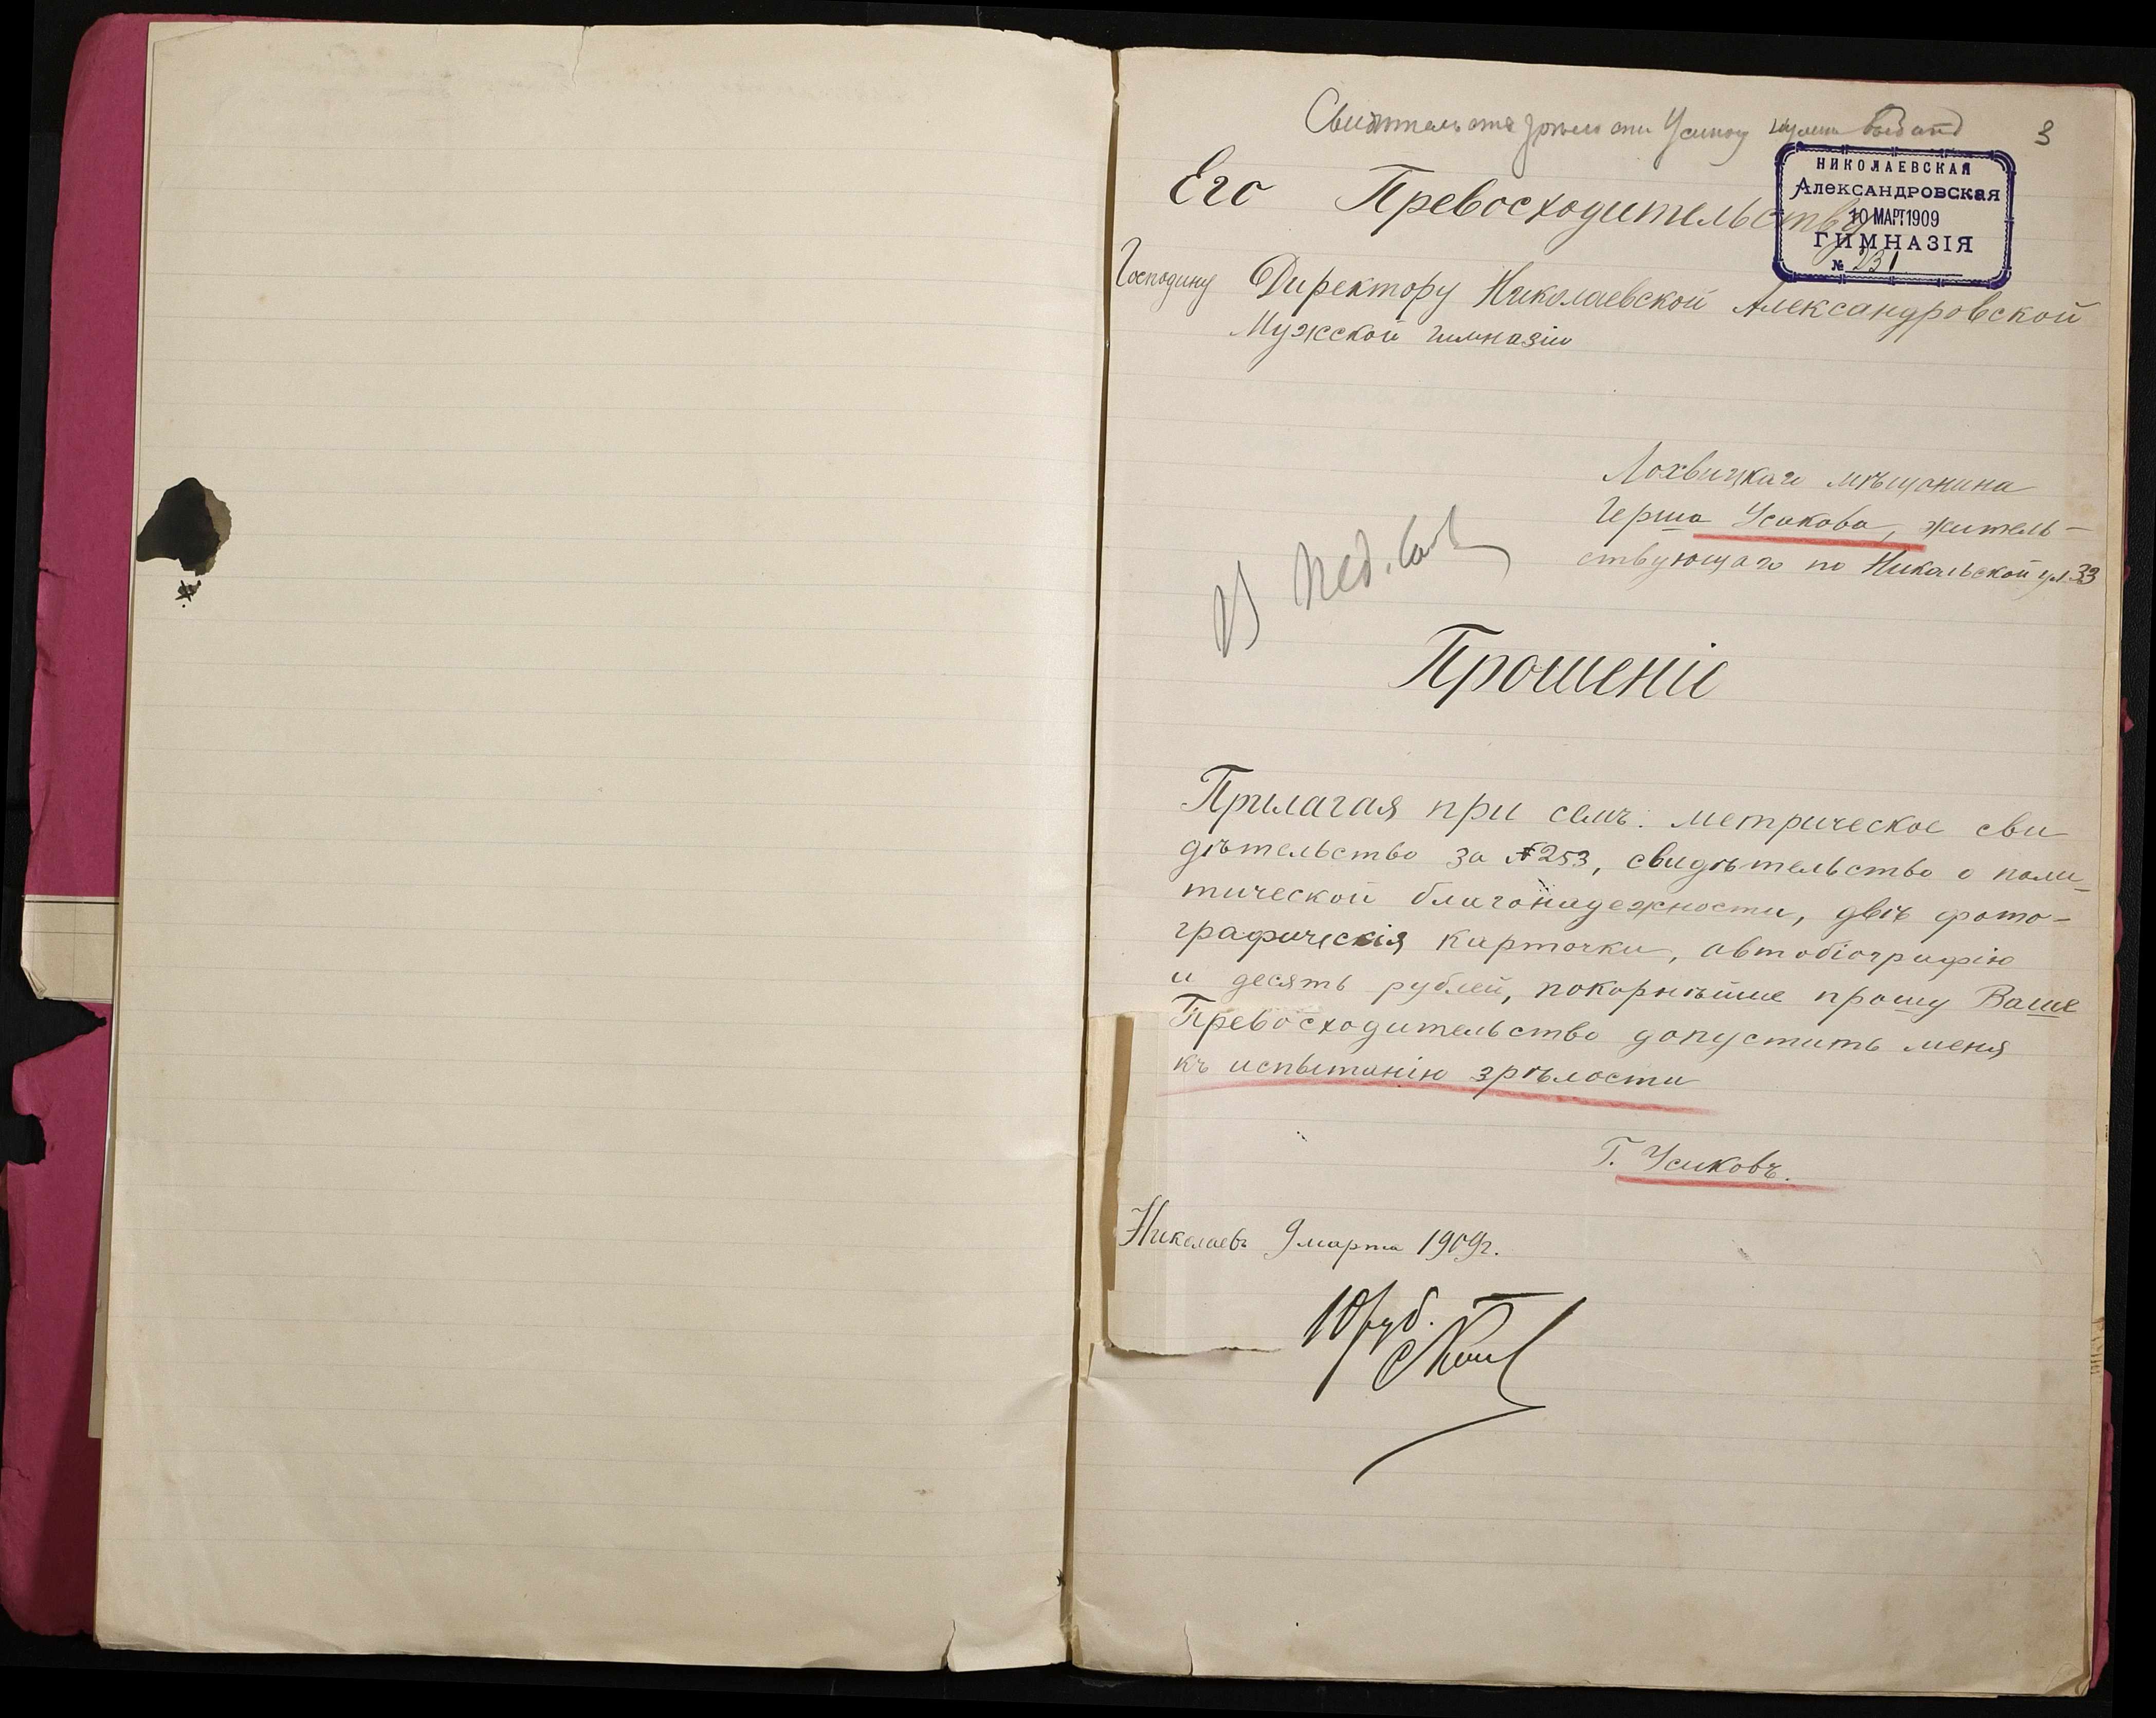 3
Его Превосходительству
НИКОЛАЕВСКАЯ
АЛЕКСАНДРОВСКАЯ
10 МАРТ 1909
ГИМНАЗІЯ
№ 231
Господину Директору Николаевской Александровской
Мужской гимназіи
Лохвицкаго мѣщанина
Герша Усикова, житель-
ствующаго по Никольской ул. 33
В Пед. Сов
Прошеніе
Прилагая при семъ: метрическое сви
дѣтельство за № 253, свидѣтельство о поли-
тической благонадежности, двѣ фото-
графическія карточки, автобіографію
и десять рублей, покорнѣйше прошу Ваше
Превосходительство допустить меня
къ испытанію зрѣлости
Г. Усиковъ.
Николаевъ 9 марта 1909 г.
10 руб.